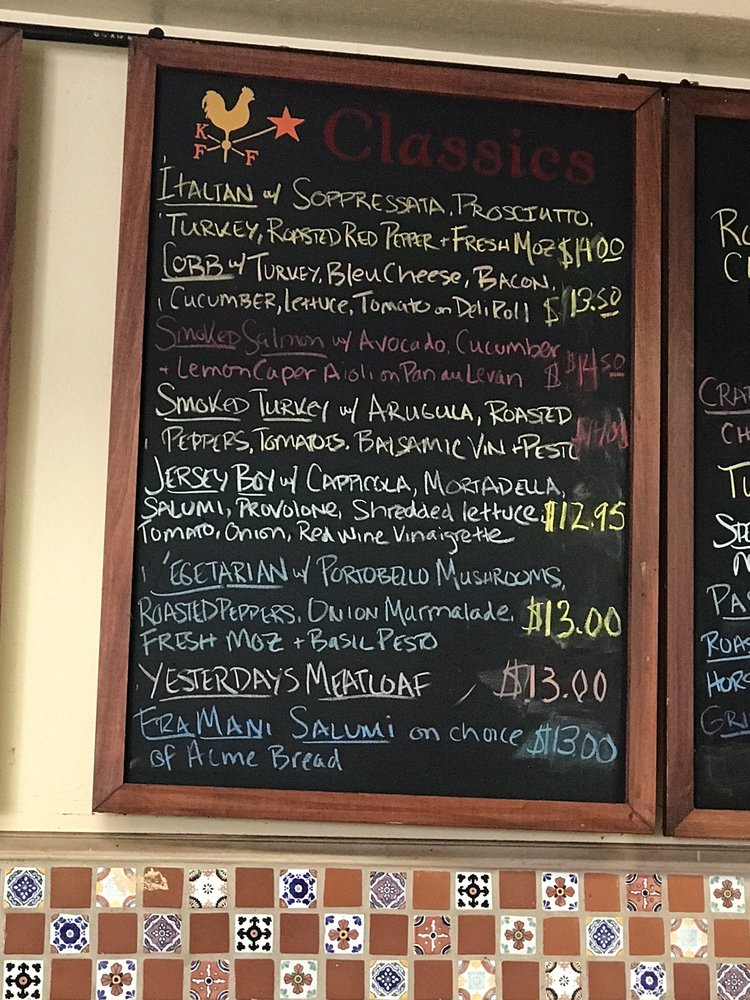 K
F F
Classics
ITALIAN w/ SOPPRESSATA, PROSCIUTTO,
TURKEY, ROASTED RED PEPPER + FRESH MOZ $14.00
COBB w/ TURKEY, BLEU CHEESE, BACON,
CUCUMBER, lettuce, Tomato on Deli Roll $13.50
Smoked Salmon w/ Avocado, Cucumber
+ Lemon Caper Aioli on Pan au Levan $14.50
SMOKED TURKEY w/ ARUGULA, ROASTED
PEPPERS, TOMATOES. BALSAMIC VIN + PESTO
JERSEY BOY w/ CAPPICOLA, MORTADELLA,
SALUMI, PROVOLONE, Shredded lettuce, $12.95
Tomato, Onion, Red Wine Vinaigrette
VEGETARIAN w/ PORTOBELLO MUSHROOMS,
ROASTED PEPPERS, ONION Marmalade, $13.00
FRESH MOZ + BASIL PESTO
YESTERDAY'S MEATLOAF $13.00
FRA'MANI SALUMI on choice $13.00
of Acme Bread